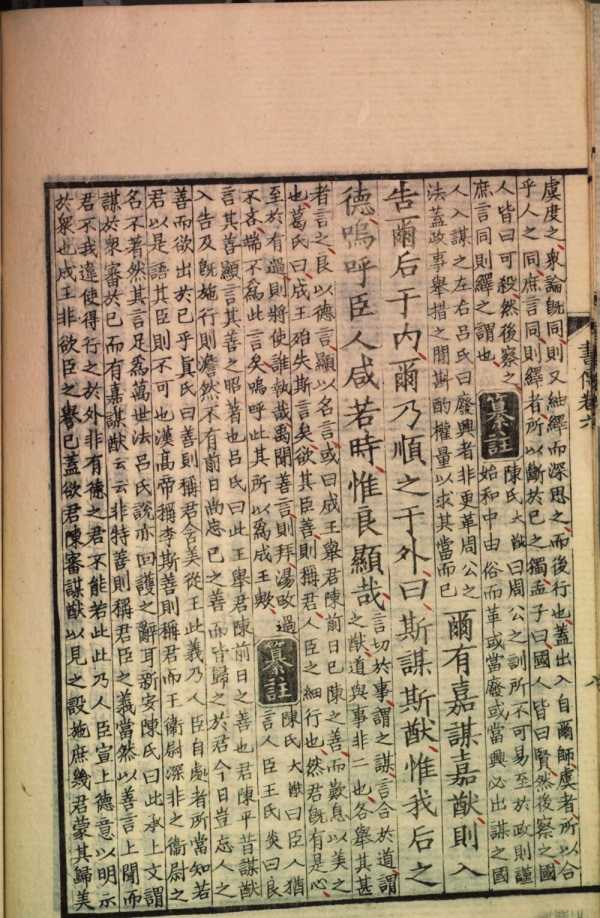 書傳卷六
虞度之衆論旣同則又紬繹而深思之而後行也蓋出入自爾師虞者所以合
乎人之同庶言同則繹者所以斷於已之獨孟子曰國人皆曰賢然後察之國
人皆曰可殺然後察之
庶言同則繹之謂也
纂註
陳氏大猷曰周公之訓所不可易至於政則謹
始和中由俗而革或當廢或當興必出謀之國
人入謀之左右呂氏曰廢興者非更革周公之
法蓋政事舉措之間斟酌權量以求其當而已
爾有嘉謀嘉猷則入
告爾后于内爾乃順之于外曰斯謀斯猷惟我后之
德嗚呼臣人咸若時惟良顯哉
言切於事謂之謀言合於道謂
之猷道與事非二也各舉其甚
者言之良以德言顯以名言或曰成王舉君陳前日已陳之善而歎息以美之
也葛氏曰成王殆失斯言矣欲其臣善則稱君人臣之細行也然君旣有是心
至於有過則將使誰執哉禹聞善言則拜湯改過
不吝端不爲此言矣嗚呼此其所以爲成王歟
纂註
陳氏大猷曰臣人猶
言人臣王氏炎曰良
言其善顯言其善之昭著也呂氏曰此王舉君陳前日之善也君陳平昔謀猷
入告及旣施行則澹然不有前日尚忘已之善而皆歸之於君今日豈忘人之
善而欲出於已乎眞氏曰善則稱君舍美從王此義乃人臣自處者所當知若
君以是語其臣則不可也漢高帝稱李斯善則稱君而王衛尉深非之衛尉之
名不著然其言足爲萬世法呂氏說亦回護之辭耳新安陳氏曰此承上文謂
謀於衆審於已而有嘉謀猷云云非特善則稱君臣之義當然以善言上聞而
君不我違使得行之於外非有德之君不能若此此乃人臣宣上德意以明示
於衆也成王非欲臣之譽已蓋欲君陳審謀猷以見之設施庶幾君蒙其歸美